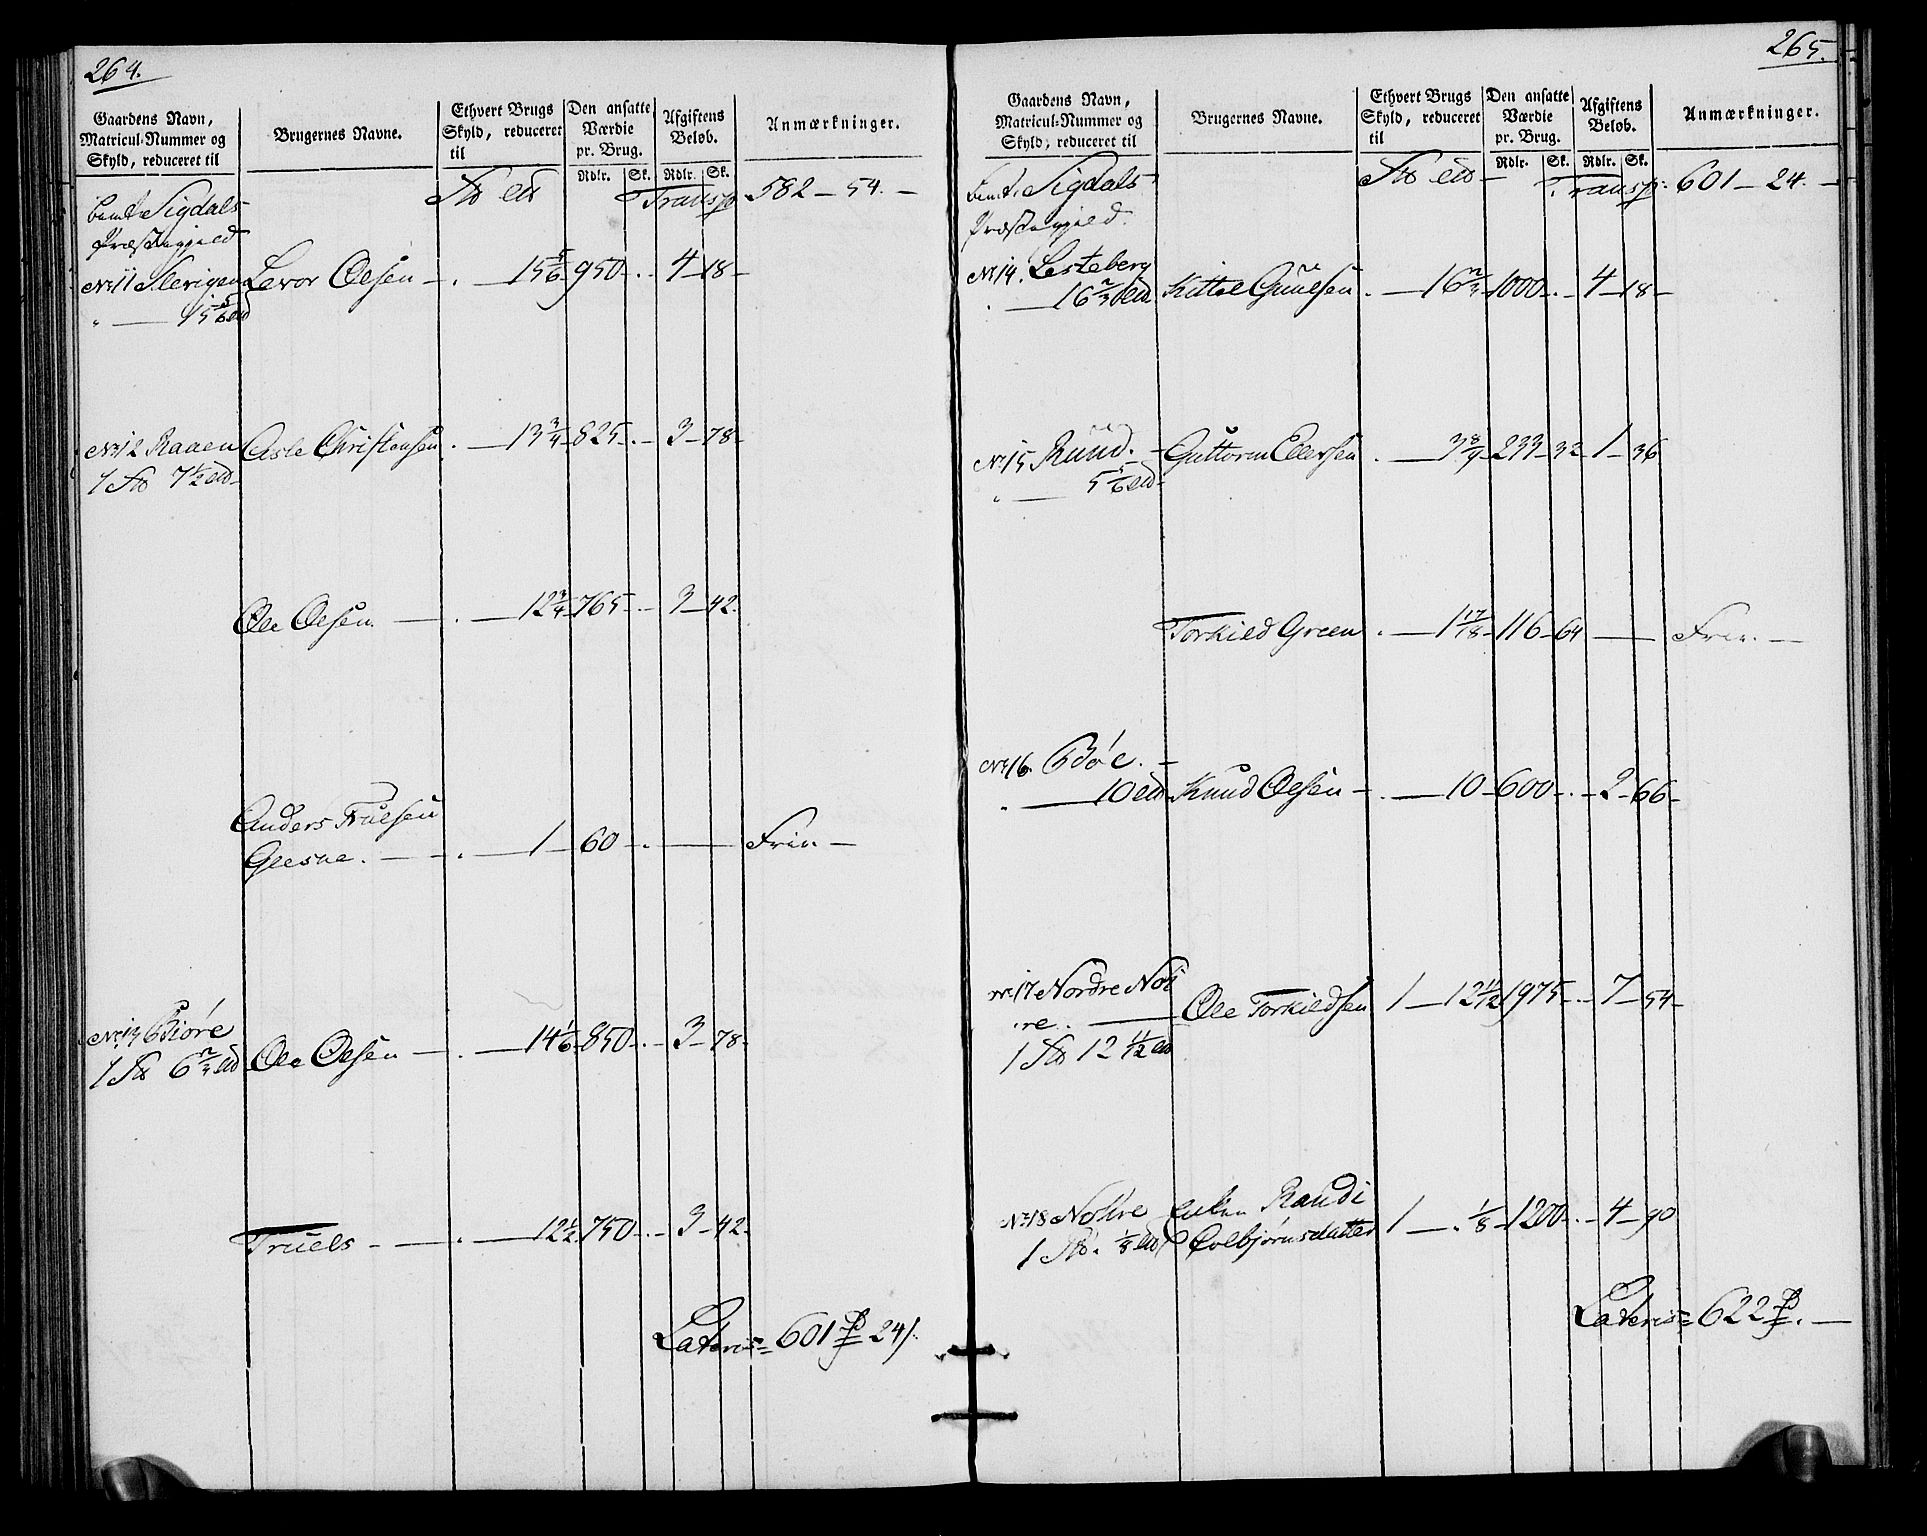 264.
Gaardens Navn, Matricul-Nummer og Skyld, reduceret til | Brugernes Navne. | Ethvert Brugs Skyld, reduceret til | Den ansatte Værdie pr. Brug. Rdlr. Sk. | Afgiftens Beløb. Rdlr. Sk. | Anmærkninger.
Transp 582 – 54. –
Sigdals
Præstegield
No 11 Levor Olsen – . – 15 5/6 – 950 – . – 4 – 18 –
" – 15 5/6
No 12 Raaen Asle Christensen . – 13 3/4 – 825 – . – 3 – 78 –
1 7 1/2
Ole Olsen. – . – 12 3/4 – 765 – . – 3 – 42.
Anders Truelsen
– . – 1 – 60 – . – Frie –
No 13 Biøre
1 6 2/3 Ole Olsen – . – 14 1/6 – 850 – . – 3 – 78 –
Truels – . – 12 1/2 – 750 – . – 3 – 42 –
Lateris = 601 24
265.
Gaardens Navn, Matricul-Nummer og Skyld, reduceret til | Brugernes Navne. | Ethvert Brugs Skyld, reduceret til | Den ansatte Værdie pr. Brug. Rdlr. Sk. | Afgiftens Beløb. Rdlr. Sk. | Anmærkninger.
Transp: 601 – 24. –
Sigdals
Præstegield.
No 14. Lesteberg
. – 16 2/3 Kittel Guulsen . – 16 2/3 – 1000 – . – 4 – 18 –
No 15 Ruud. – Guttorm Ellefsen . – 3 8/9 – 233 – 32 – 1 – 36
" – 5 5/6
Torkild Green . – 1 17/18 – 116 – 64 – Frie. –
No 16. Bøe. –
" – 10 Knud Olsen – . – 10 – 600 – . – 2 – 66 –
No 17 Nordre Noe
re. – Ole Torkildsen 1 – 12 11/12 – 1975 – . – 7 – 54 –
1 12 11/12
No 18 Enken Randi
1 1/8 Colbjørnsdatter 1 – . 1/8 – 1200 – . – 4 – 90
Lateris = 622 . –